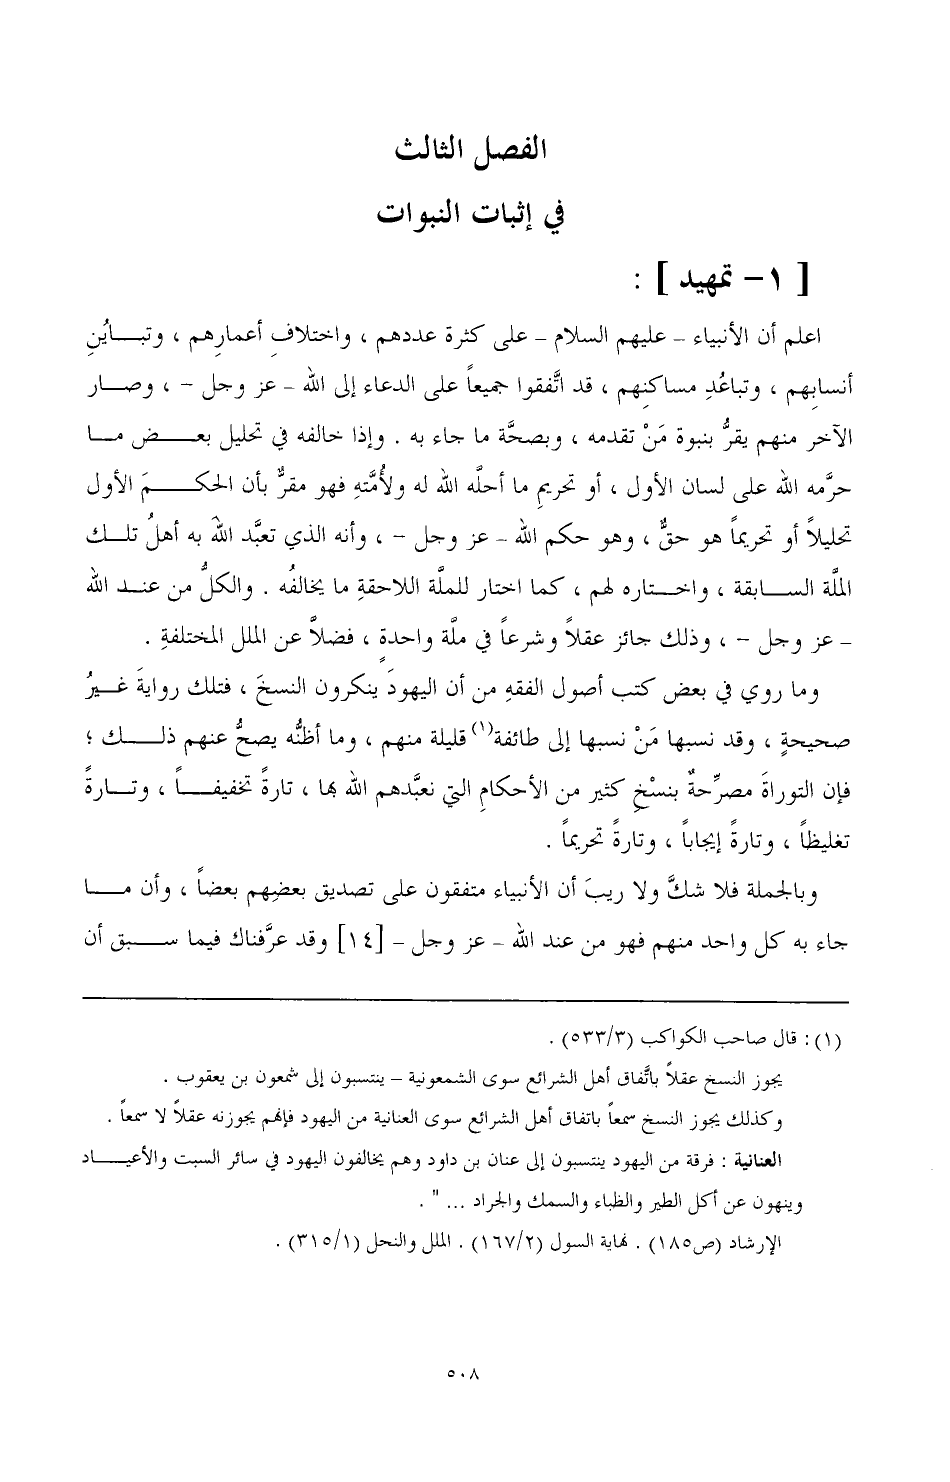 الفصل الثالث
في إثبات النبوات
[ ١- تمهيد ] :
اعلم أن الأنبياء - عليهم السلام - على كثرة عددهم ، واختلافِ أعمارِهم ، وتبايُنِ
أنسابِهم ، وتباعُدِ مساكنِهم ، قد اتَّفقوا جميعاً على الدعاء إلى الله - عز وجل - ، وصار
الآخر منهم يقرُّ بنبوة مَنْ تقدمه ، وبصحَّة ما جاء به . وإذا خالفه في تحليل بعض ما
حرَّمه الله على لسان الأول ، أو تحريمِ ما أحلَّه الله له ولأُمَّتهِ فهو مقرٌّ بأن الحكمَ الأول
تحليلاً أو تحريماً هو حقٌّ ، وهو حكم الله - عز وجل - ، وأنه الذي تعبَّد اللهُ به أهلُ تلك
الملَّة السابقة ، واختاره لهم ، كما اختار للملَّة اللاحقةِ ما يخالفُه . والكلُّ من عند الله
- عز وجل - ، وذلك جائز عقلاً وشرعاً في ملَّة واحدةٍ ، فضلاً عن الملل المختلفةِ .
وما روي في بعض كتب أصول الفقهِ من أن اليهودَ ينكرون النسخَ ، فتلك روايةَ غيرُ
صحيحةٍ ، وقد نسبها مَنْ نسبها إلى طائفة(١) قليلة منهم ، وما أظنُّه يصحُّ عنهم ذلك ؛
فإن التوراةَ مصرِّحةٌ بنسْخِ كثير من الأحكامِ التي تعبَّدهم الله بها ، تارةً تخفيفاً ، وتارةً
تغليظاً ، وتارةً إيجاباً ، وتارةً تحريماً .
وبالجملة فلا شكَّ ولا ريبَ أن الأنبياء متفقون على تصديق بعضِهم بعضاً ، وأن ما
جاء به كل واحد منهم فهو من عند الله - عز وجل - [١٤] وقد عرَّفناك فيما سبق أن
(١) : قال صاحب الكواكب (٥٣٣/٣) .
يجوز النسخ عقلاً باتَّفاق أهل الشرائع سوى الشمعونية – ينتسبون إلى شمعون بن يعقوب .
وكذلك يجوز النسخ سمعاً باتفاق أهل الشرائع سوى العنانية من اليهود فإنهم يجوزنه عقلاً لا سمعاً .
العنانية : فرقة من اليهود ينتسبون إلى عنان بن داود وهم يخالفون اليهود في سائر السبت والأعياد
وينهون عن أكل الطير والظباء والسمك والجراد ... " .
الإرشاد (ص١٨٥) . نهاية السول (١٦٧/٢) . الملل والنحل (٣١٥/١) .
٥٠٨